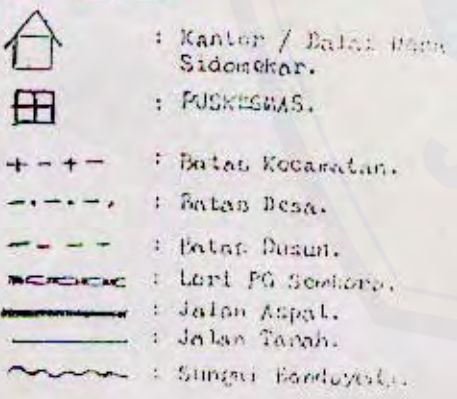 : Kantor / Balai Desa
Sidomekar.
: PUSKESMAS.
: Batas Kecamatan.
: Batas Desa.
: Batas Dusun.
: Lori PG Semboro.
: Jalan Aspal.
: Jalan Tanah.
: Sungai